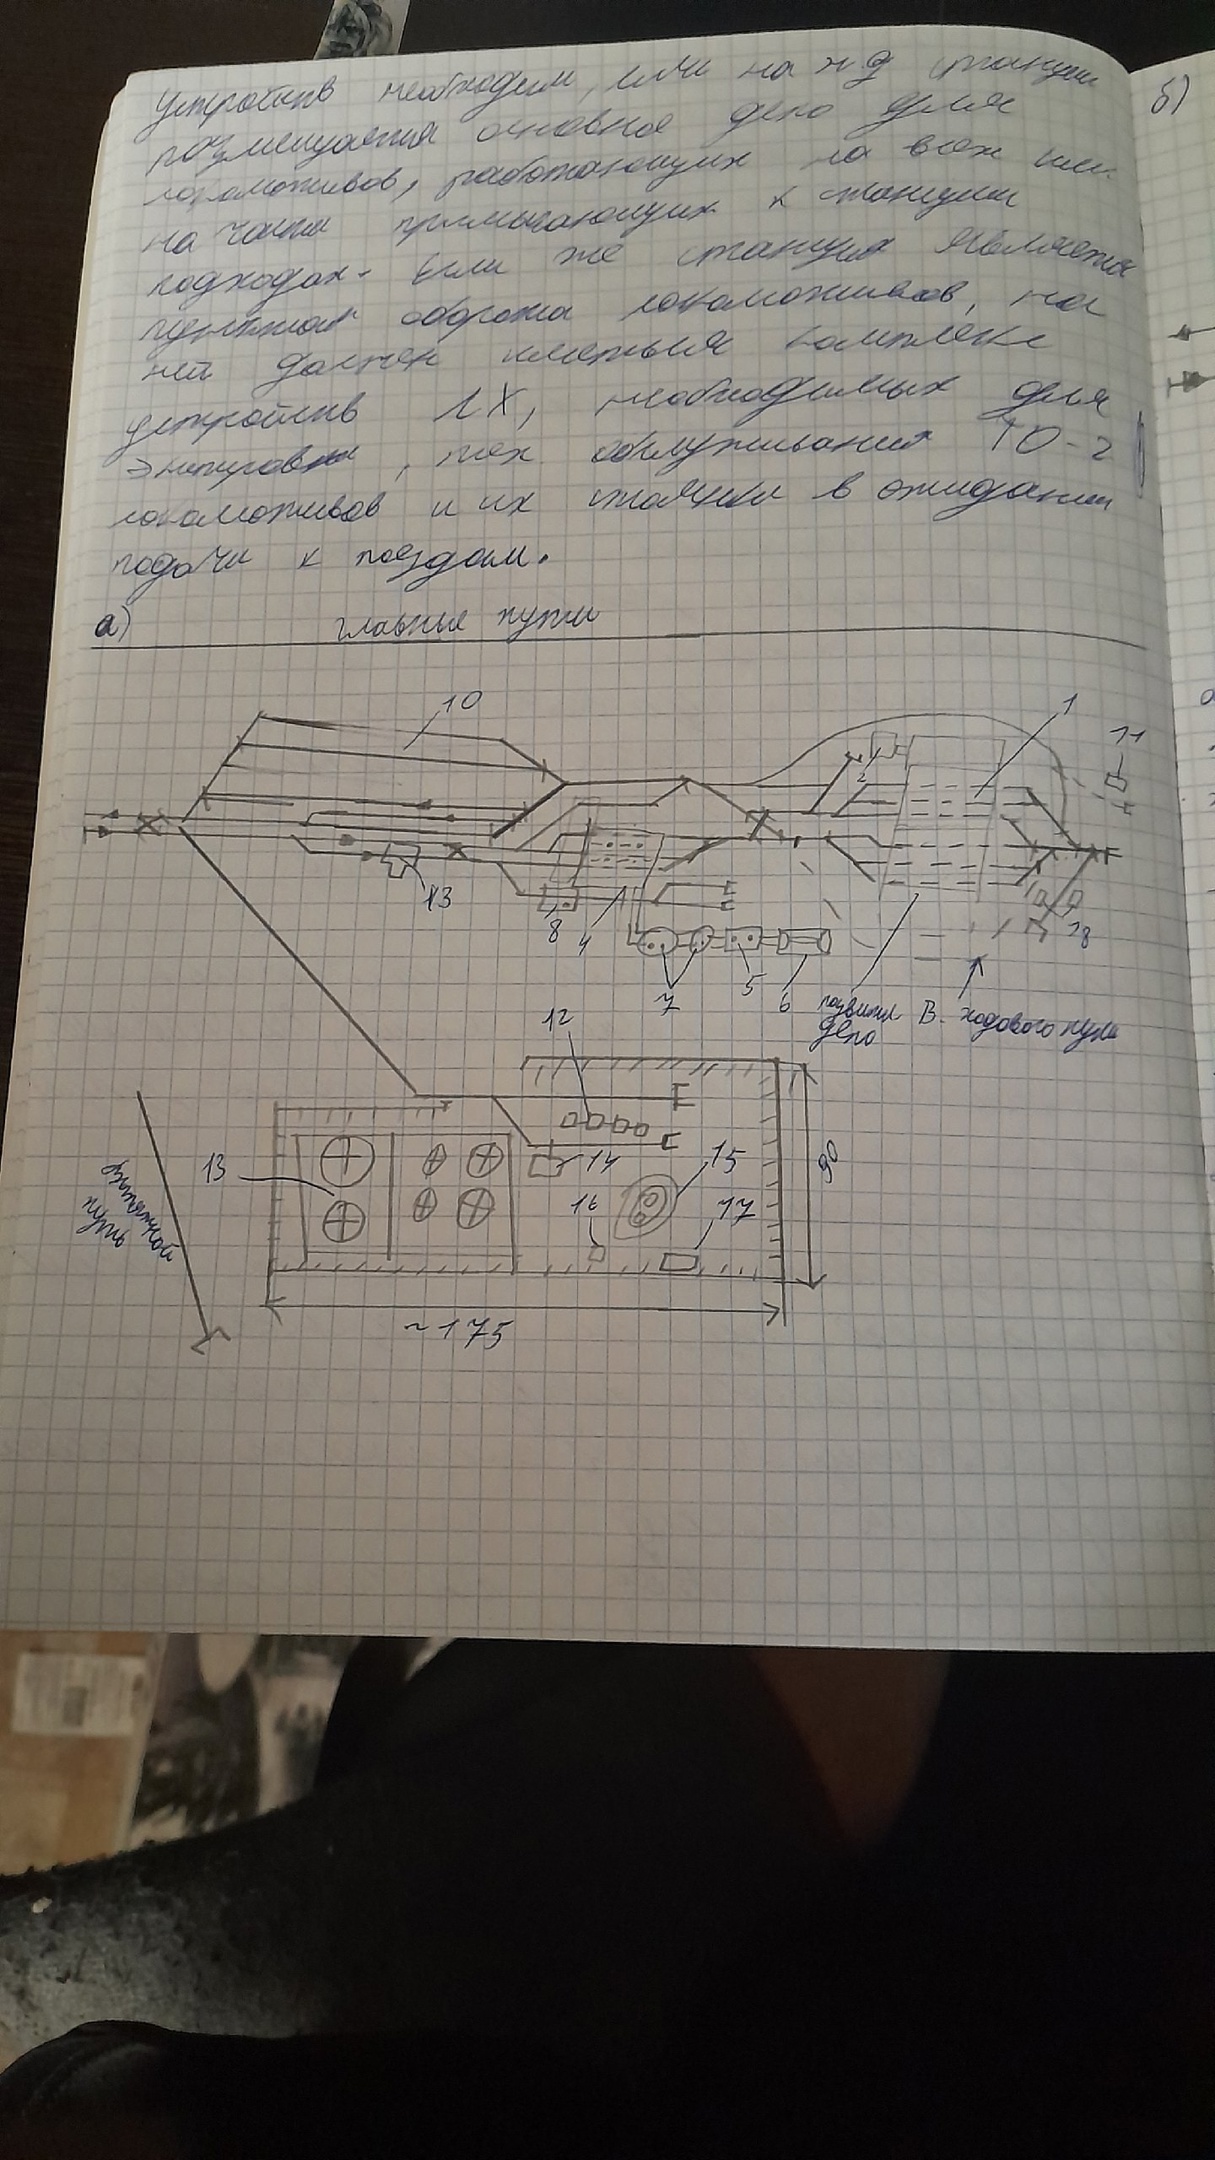 устройств необходим, если на ж д станции
размещается основное депо для
локомотивов, работающих на всех или
на части примыкающих к станции
подходах. Если же станция является
пунктом оборота локомотивов, на
ней должен иметься комплекс
устройств ЛХ, необходимых для
экипировки, тех. обслуживания ТО-2
локомотивов и их стоянки в ожидании
подачи к поездам.
б)
а) главные пути
10
1
11
2
13
8
4
18
7
5
6
развития
депо
В. ходового пути
12
90
13
14
15
16
17
вытяжной
путь
~175